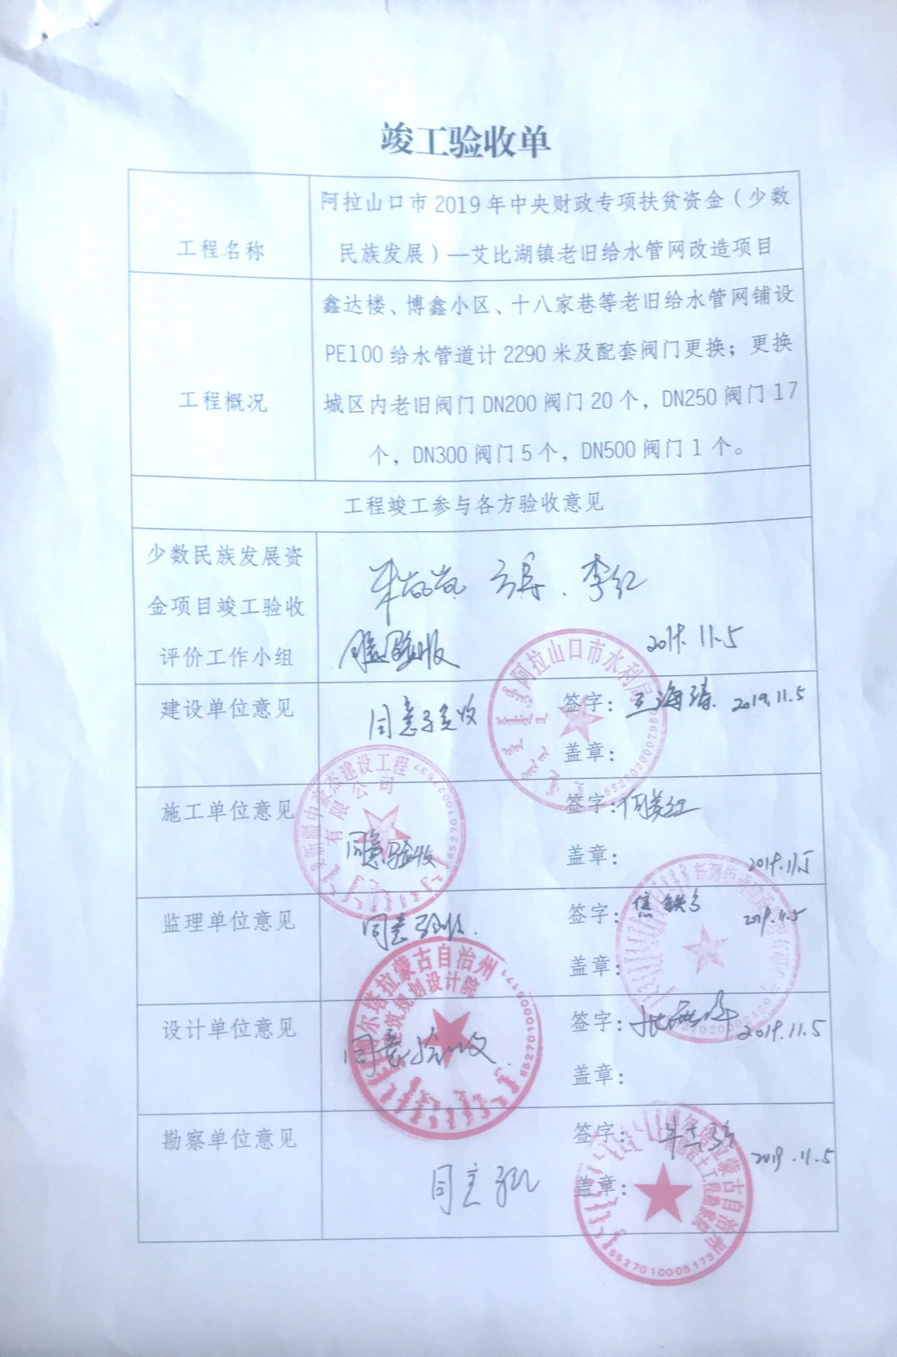 竣工验收单
工程名称
阿拉山口市2019年中央财政专项扶贫资金（少数
民族发展）—艾比湖镇老旧给水管网改造项目
工程概况
鑫达楼、博鑫小区、十八家巷等老旧给水管网铺设
PE100给水管道计2290米及配套阀门更换；更换
城区内老旧阀门DN200阀门20个，DN250阀门17
个，DN300阀门5个，DN500阀门1个。
工程竣工参与各方验收意见
少数民族发展资
金项目竣工验收
评价工作小组
李红
同意验收
2019.11.5
建设单位意见
同意验收
签字：王海靖 2019.11.5
盖章：
阿拉山口市水利局
施工单位意见
同意验收
签字：
盖章：
2019.11.5
建设工程
有限公司
监理单位意见
同意验收
签字：
2019.11.5
盖章：
设计单位意见
同意验收
签字：
2019.11.5
盖章：
尔塔拉蒙古自治州
建筑规划设计院
勘察单位意见
同意验收
签字：
2019.11.5
盖章：
博尔塔拉蒙古自治州
6527010005173